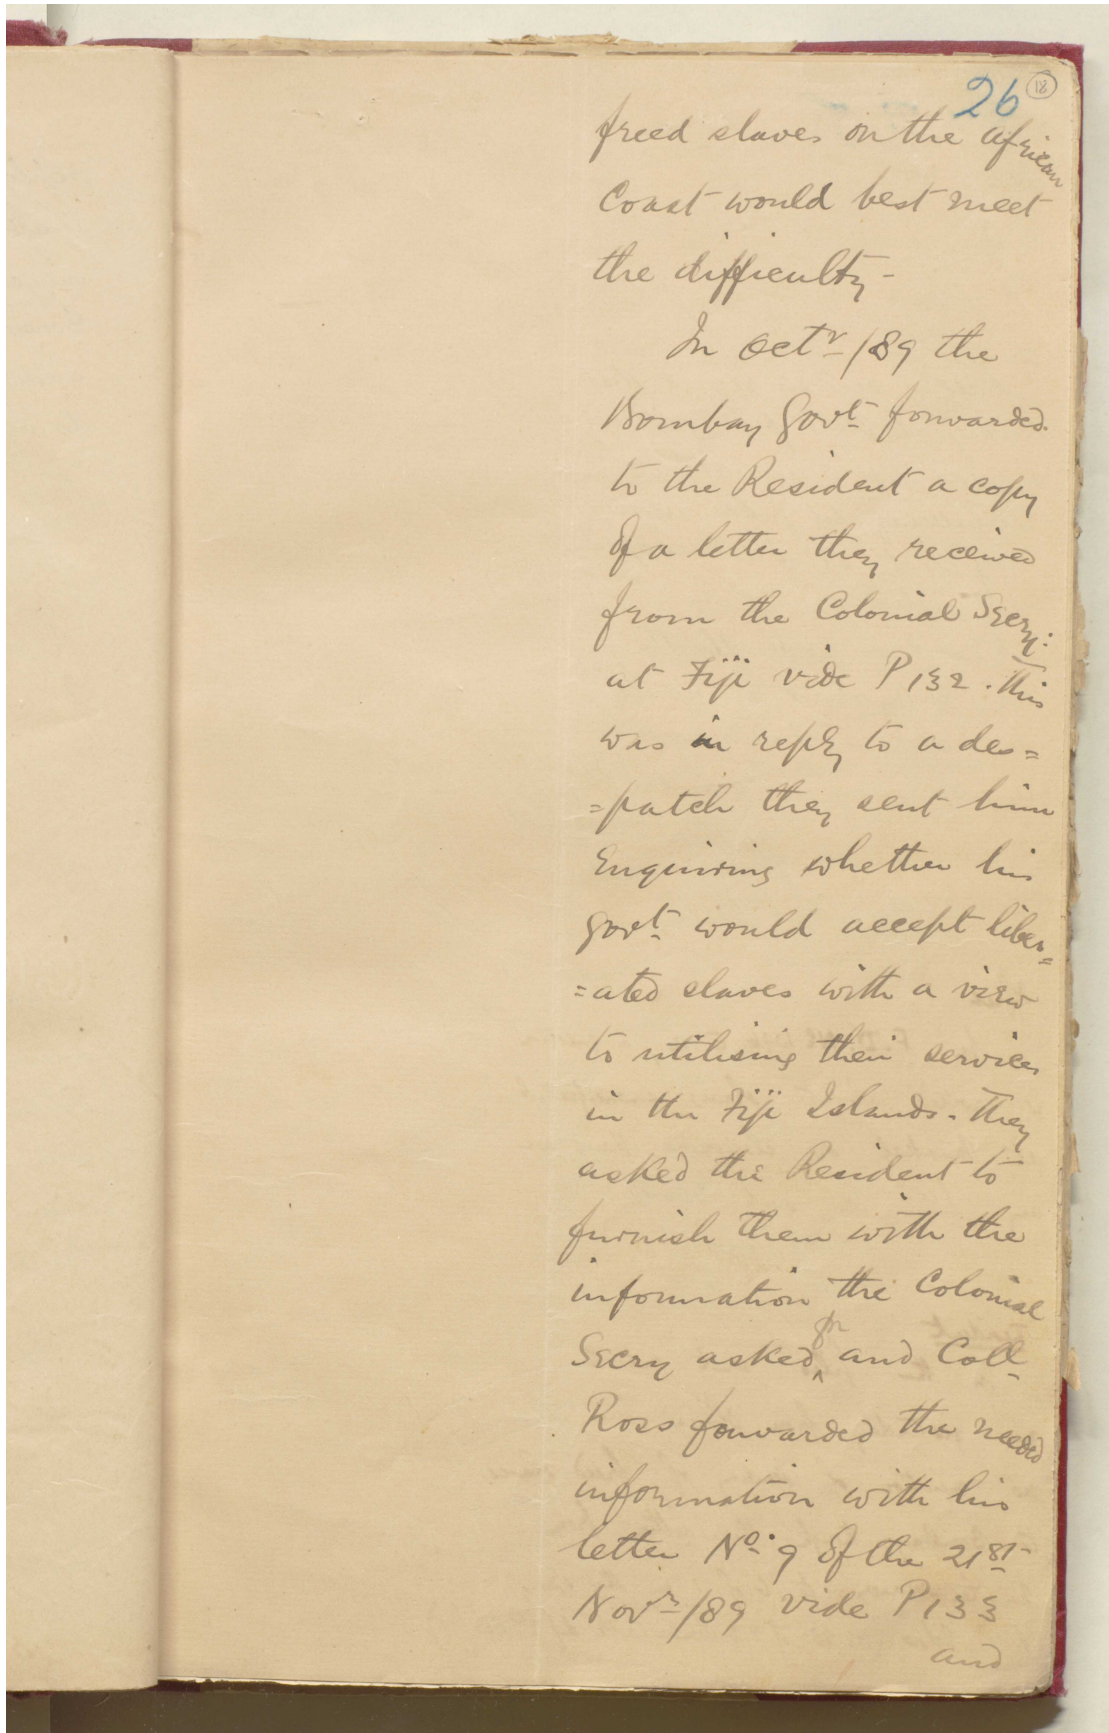 26 18
freed slaves on the African
Coast would best meet
the difficulty -
In Octr /89 the
Bombay Govt forwarded
to the Resident a copy
of a letter they received
from the Colonial Secry:
at Fiji vide P 132. This
was in reply to a des=
=patch they sent him
Enquiring whether his
Govt would accept liber=
=ated slaves with a view
to utilising their services
in the Fiji Islands. They
asked the Resident to
furnish them with the
information the Colonial
Secry asked for and Coll
Ross forwarded the needed
information with his
letter No. 9 of the 21st
Novr /89 vide P 133
and